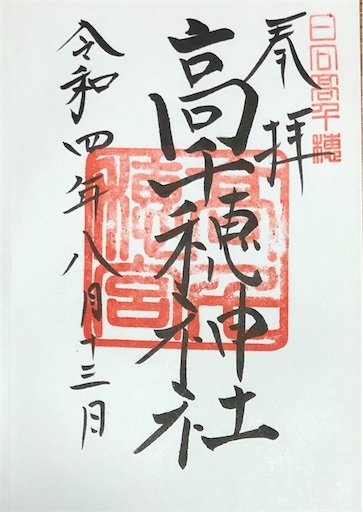 日向高千穂
奉拝
高千穂神社
高千穂宮
令和四年八月十三日